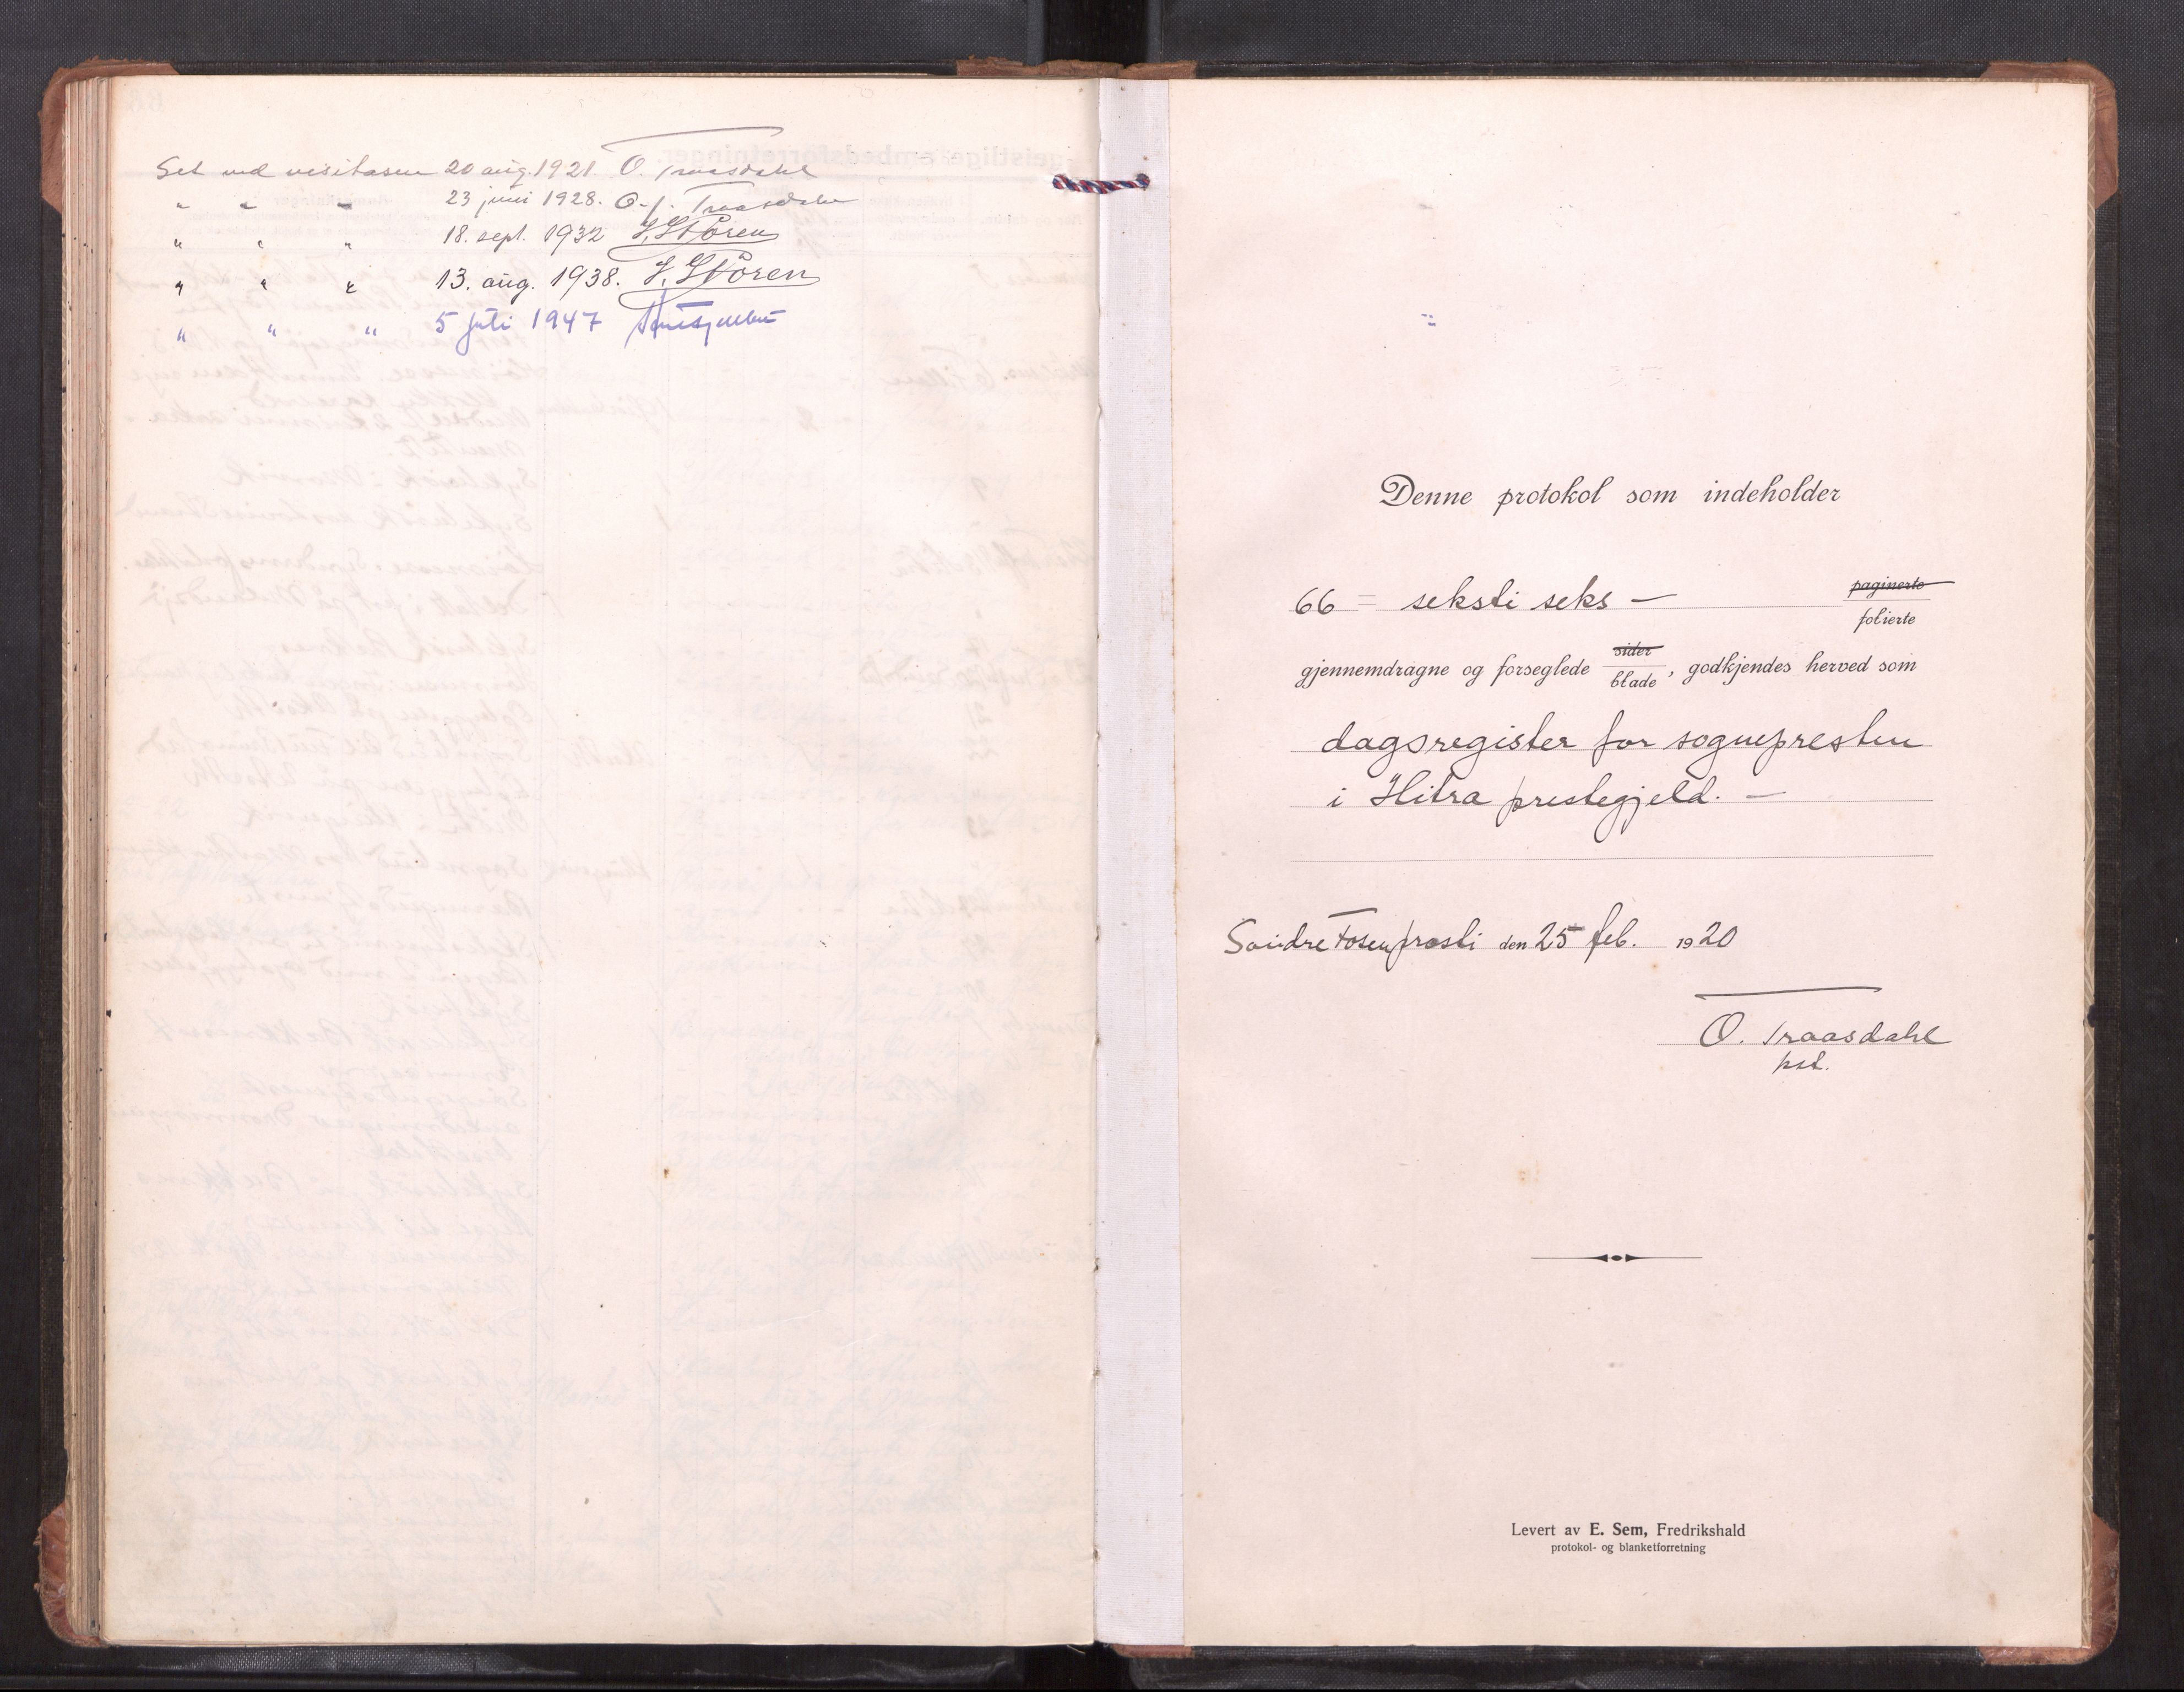 Set ved visitasen 20 aug. 1921 O. Traasdahl
" " " 23 juni 1928. O. J. Traasdahl
" " " 18. sept. 1932 J. Støren
" " " 13. aug. 1938. J. Støren
" " " 5 juli 1947
Denne protokol som indeholder
66 = seksti seks —
paginerte
folierte
gjennemdragne og forseglede sider blade, godkjendes herved som
dagsregister for sognepresten
i Hitra prestegjeld. —
Søndre Fosen prosti den 25 feb. 1920
O. Traasdahl
pst.
Levert av E. Sem, Fredrikshald
protokol- og blanketforretning